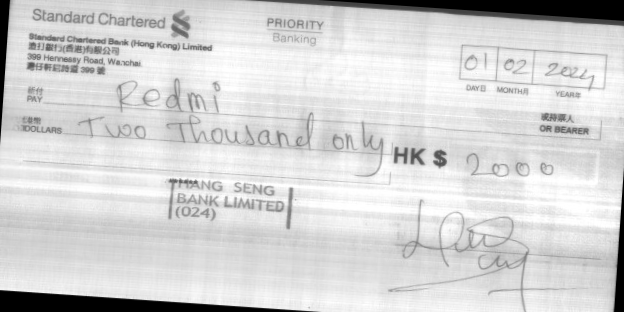 Standard Chartered
PRIORITY
Banking
Standard Chartered Bank (Hong Kong) Limited
渣打銀行(香港)有限公司
399 Hennessy Road, Wanchai
灣仔軒尼詩道 399 號
01 02 2024
DAY日 MONTH月 YEAR年
祈付
PAY Redmi
或持票人
OR BEARER
DOLLARS Two Thousand only
HK $ 2000
HANG SENG
BANK LIMITED
(024)